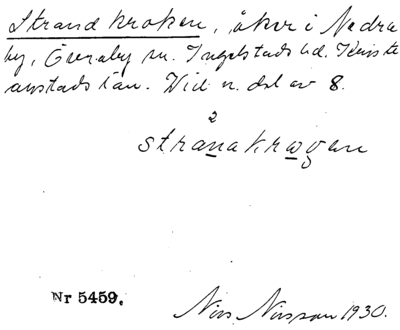 Strandkroken, åker i Nedra
by, Everaby sn. Ingelstads hd. Kristi
anstads län. Vid n. del av 8.
2
stranakrωgen
Nr 5459.
Nils Nilsson 1930.